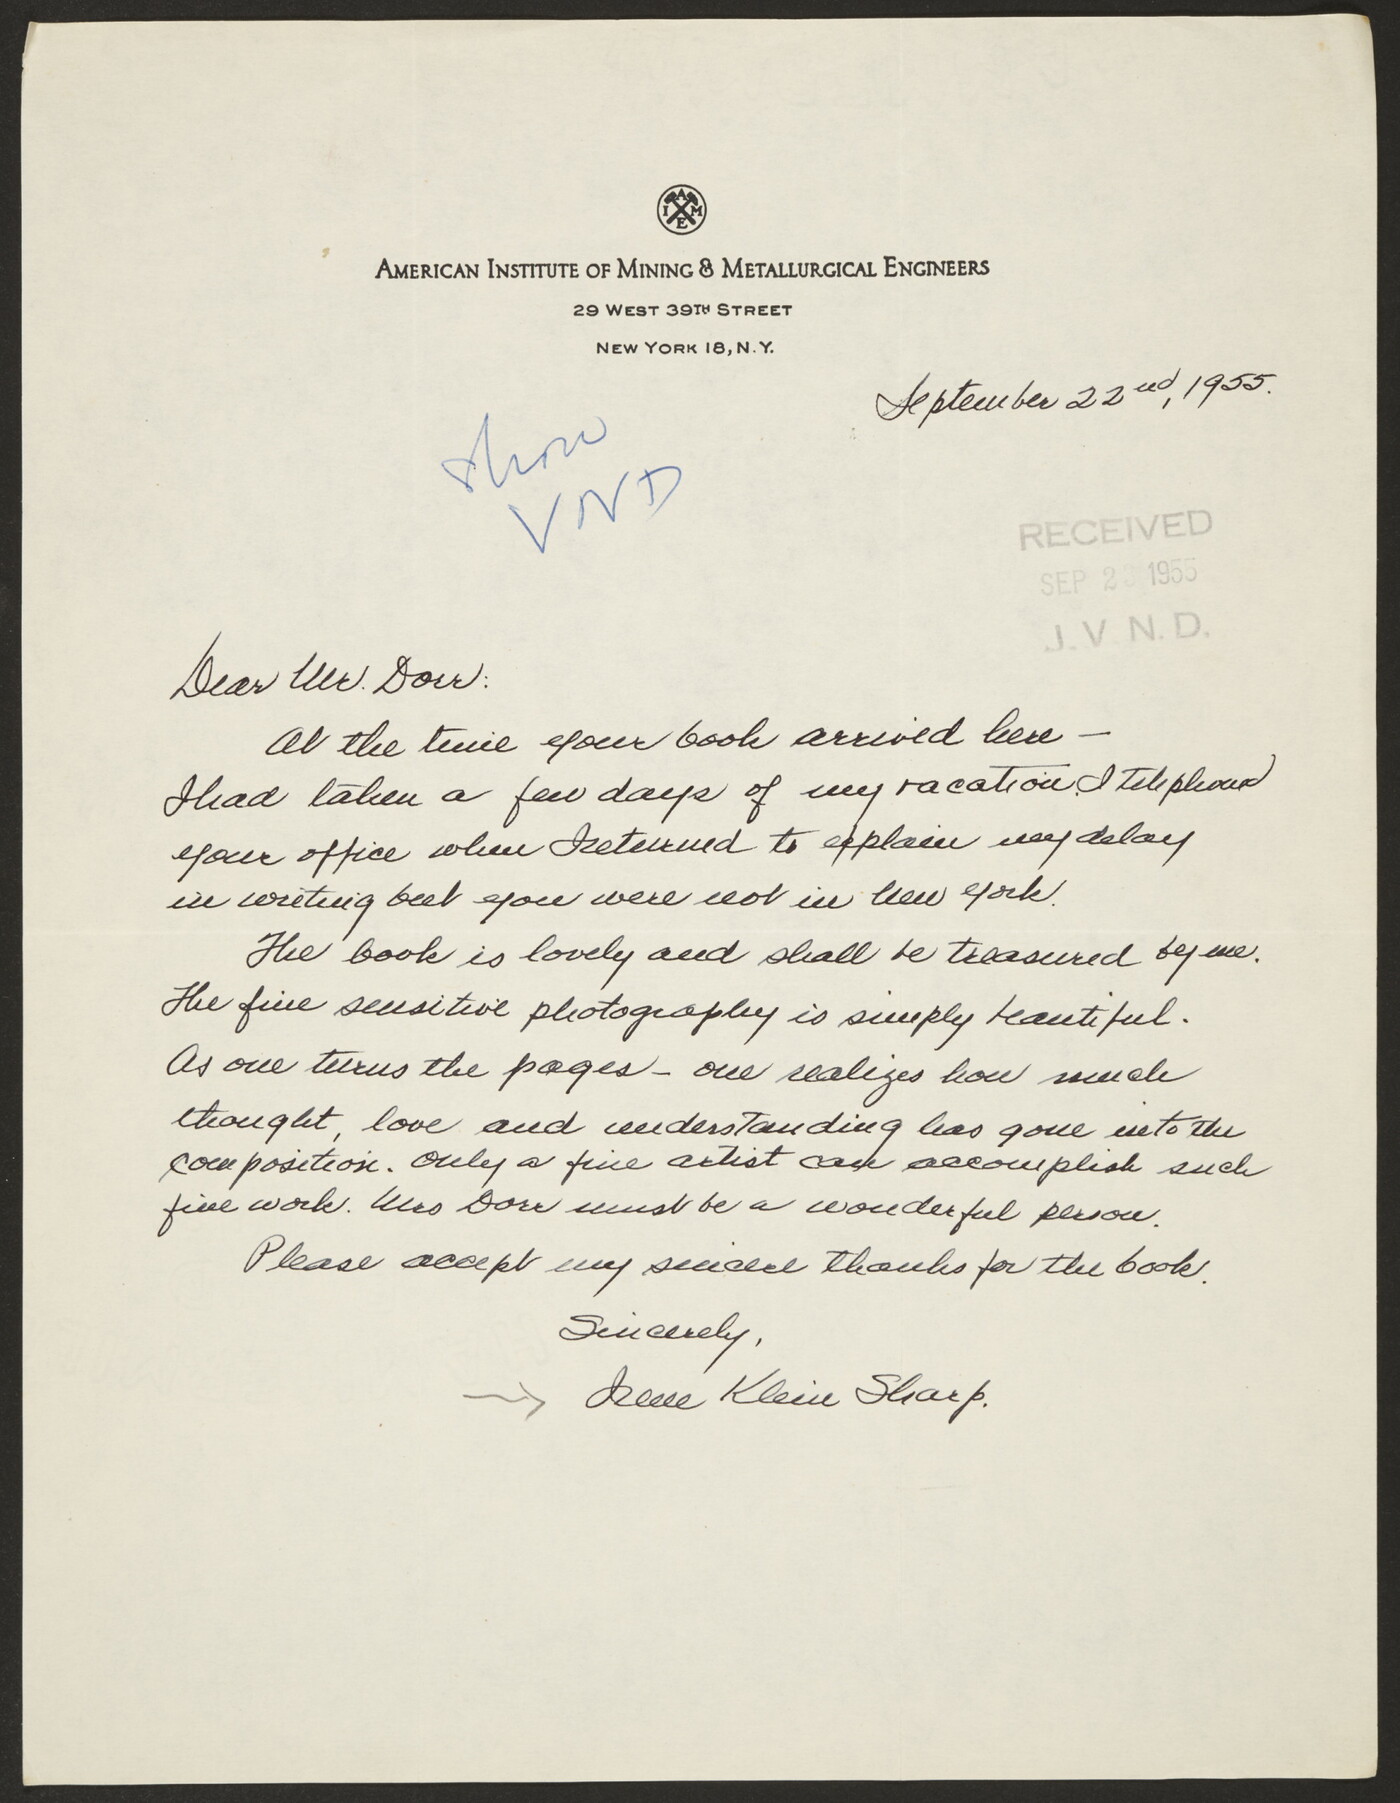 A
I M
E
AMERICAN INSTITUTE OF MINING & METALLURGICAL ENGINEERS
29 WEST 39TH STREET
NEW YORK 18, N.Y.
September 22nd, 1955.
Show
VND
RECEIVED
SEP 23 1955
J. V. N. D.
Dear Mr. Dorr:
At the time your book arrived here —
I had taken a few days of my vacation. I telephoned
your office when I returned to explain my delay
in writing but you were not in New York.
The book is lovely and shall be treasured by me.
The fine sensitive photography is simply beautiful.
As one turns the pages — one realizes how much
thought, love and understanding has gone into the
composition. Only a fine artist can accomplish such
fine work. Mrs Dorr must be a wonderful person.
Please accept my sincere thanks for the book.
Sincerely,
Irene Klein Sharp.